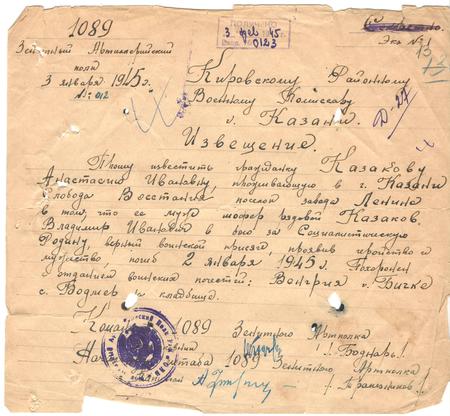 1089
Зенитный Артиллерийский
полк
3 января 1945 г.
№ 012
ПОЛУЧЕНО
3 фев 1945
0123
Секретно.
Экз. №1
Кировскому Районному
Военному Комиссару
г. Казани.
Извещение.
Прошу известить гражданку Казакову
Анастасию Ивановну, проживающую в г. Казани
Слобода Восстания поселок завода Ленина
в том, что ее муж шофер рядовой Казаков
Владимир Иванович в бою за Социалистическую
Родину, верный воинской присяге, проявив геройство и
мужество погиб 2 января 1945 г. Похоронен
с отданием воинских почестей: Венгрия г. Бичке
с. Водмер на кладбище.
1089 Зенитного Артполка
/Боднарь/
штаба 1089 Зенитного Артполка